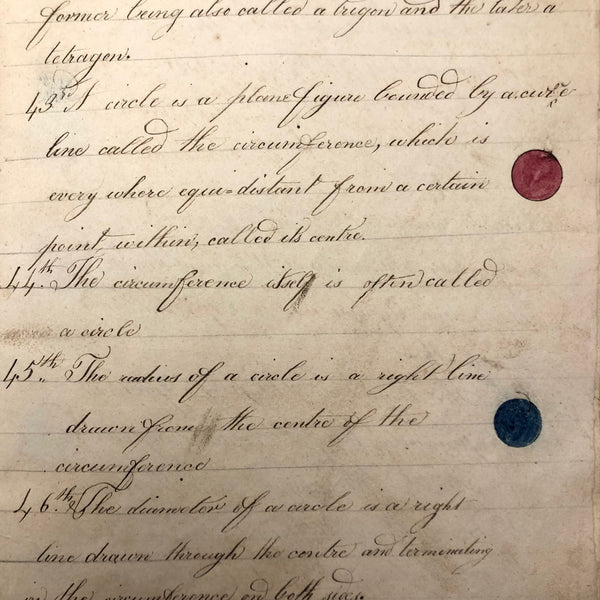 former being also called a trigon and the later a
tetragon.
43rd A circle is a plane figure bounded by a curve
line called the circumference, which is
every where equi=distant from a certain
point, within, called its centre.
44th. The circumference itself is often called
a circle
45th. The radius of a circle is a right line
drawn from the centre of the
circumference
46th. The diameter of a circle is a right
line drawn through the centre and terminating
in the circumference on both sides.